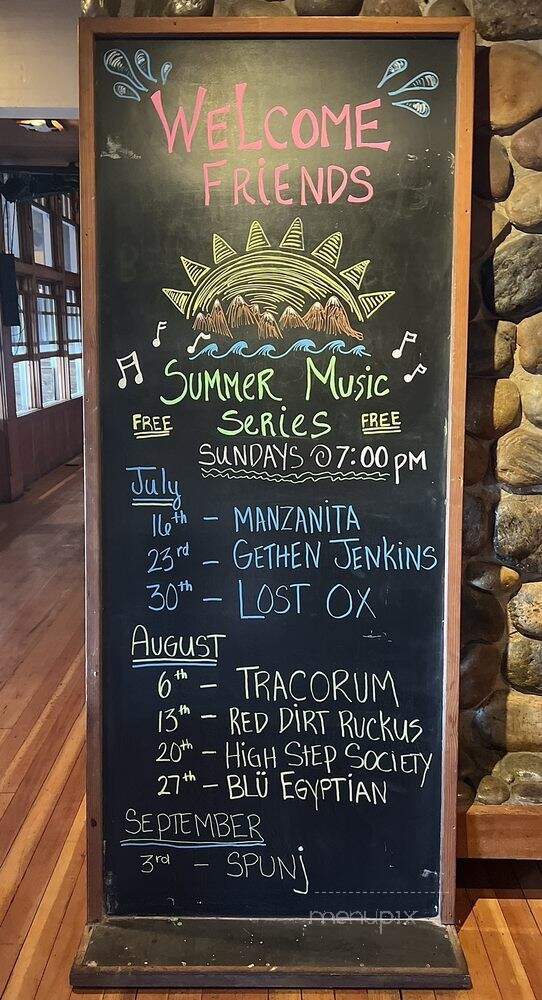 WELCOME
FRiENDS
SUMMER MUSiC
FREE SERiES FREE
SUNDAYS @ 7:00 PM
July
16th - MANZANiTA
23rd - GETHEN JENKiNS
30th - LOST OX
AUGUST
6th - TRACORUM
13th - RED DiRT RUCKUS
20th - HiGH STEP SOCiETY
27th - BLÜ EGYPTiAN
SEPTEMBER
3rd - SPUNj
menupix